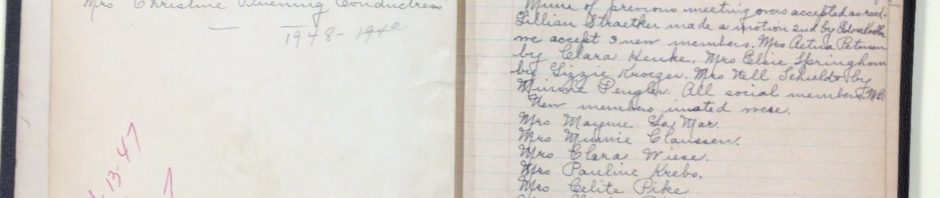 Mrs Christine Conductress
1948-1940
1-13-47
Minute of previous meeting was accepted as read.
Lillian Straetker made a motion 2nd by
we accept 3 new members. Mrs Petersen
by Clara Henke. Mrs Elsie Springhorn
by Lizzie Kroeger. Mrs Nell Schields by
Minnie Pengler. All social members.
New members inated were.
Mrs Mayme La Mar.
Mrs Minnie Claussen.
Mrs Clara Wiese.
Mrs Pauline Krebs.
Mrs Celite Pike